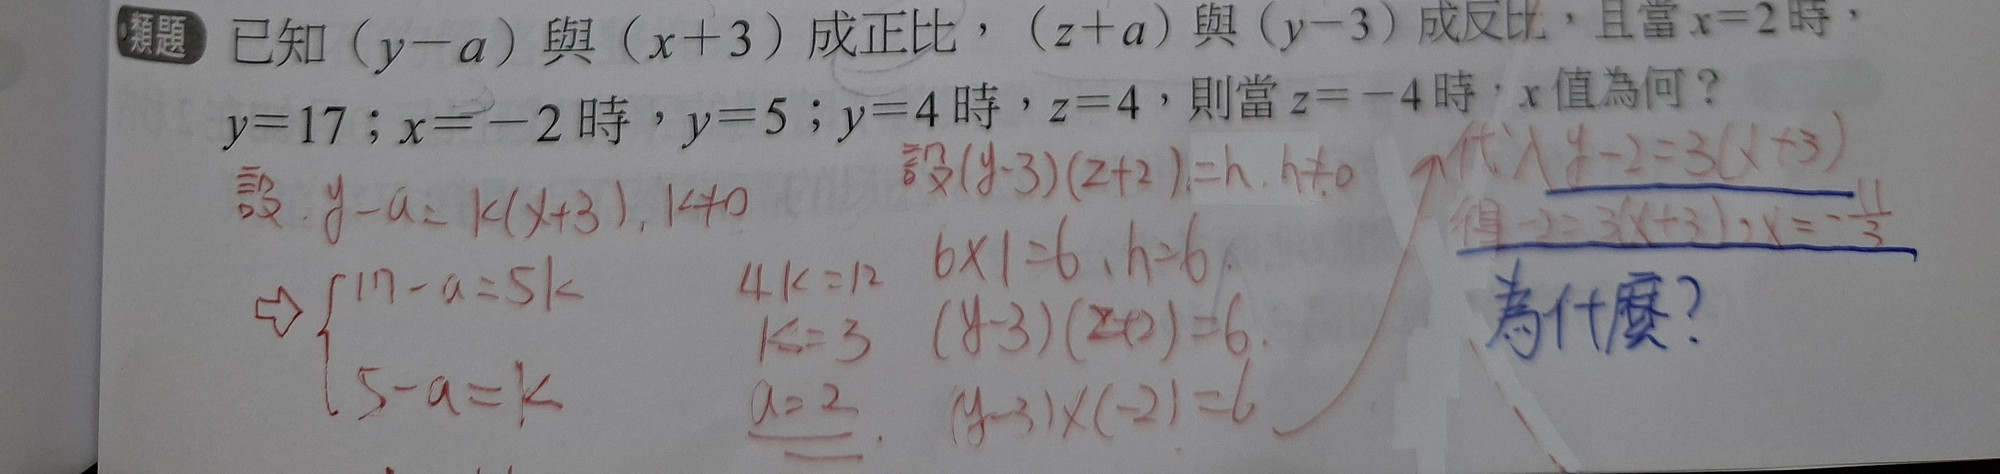 類題 已知（y－a）與（x＋3）成正比，（z＋a）與（y－3）成反比，且當x＝2時，
y＝17；x＝－2時，y＝5；y＝4時，z＝4，則當z＝－4時，x值為何？
設 y-a=k(x+3), k≠0
⇨ { 17-a=5k
5-a=k
4k=12
k=3
a=2
設(y-3)(z+2)=h, h≠0
6×1=6、h=6.
(y-3)(z+2)=6.
(y-3)×(-2)=6
代入 y-2=3(x+3)
得-2=3(x+3), x=-11/3
為什麼?